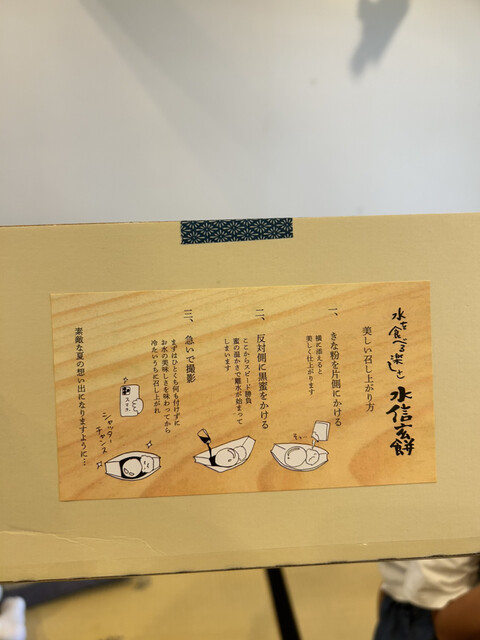 水を食べる楽しさ
水信玄餅
美しい召し上がり方
一、きな粉を片側にかける
横に添えると
美しく仕上がります
二、反対側に黒蜜をかける
ここからスピード勝負
蜜の温かさで離水が始まって
しまいます
三、急いで撮影
まずはひとくち何も付けずに
お水の美味しさを味わってから
冷たいうちに召し上がれ
シャッター
チャンス
素敵な夏の想い出になりますように…